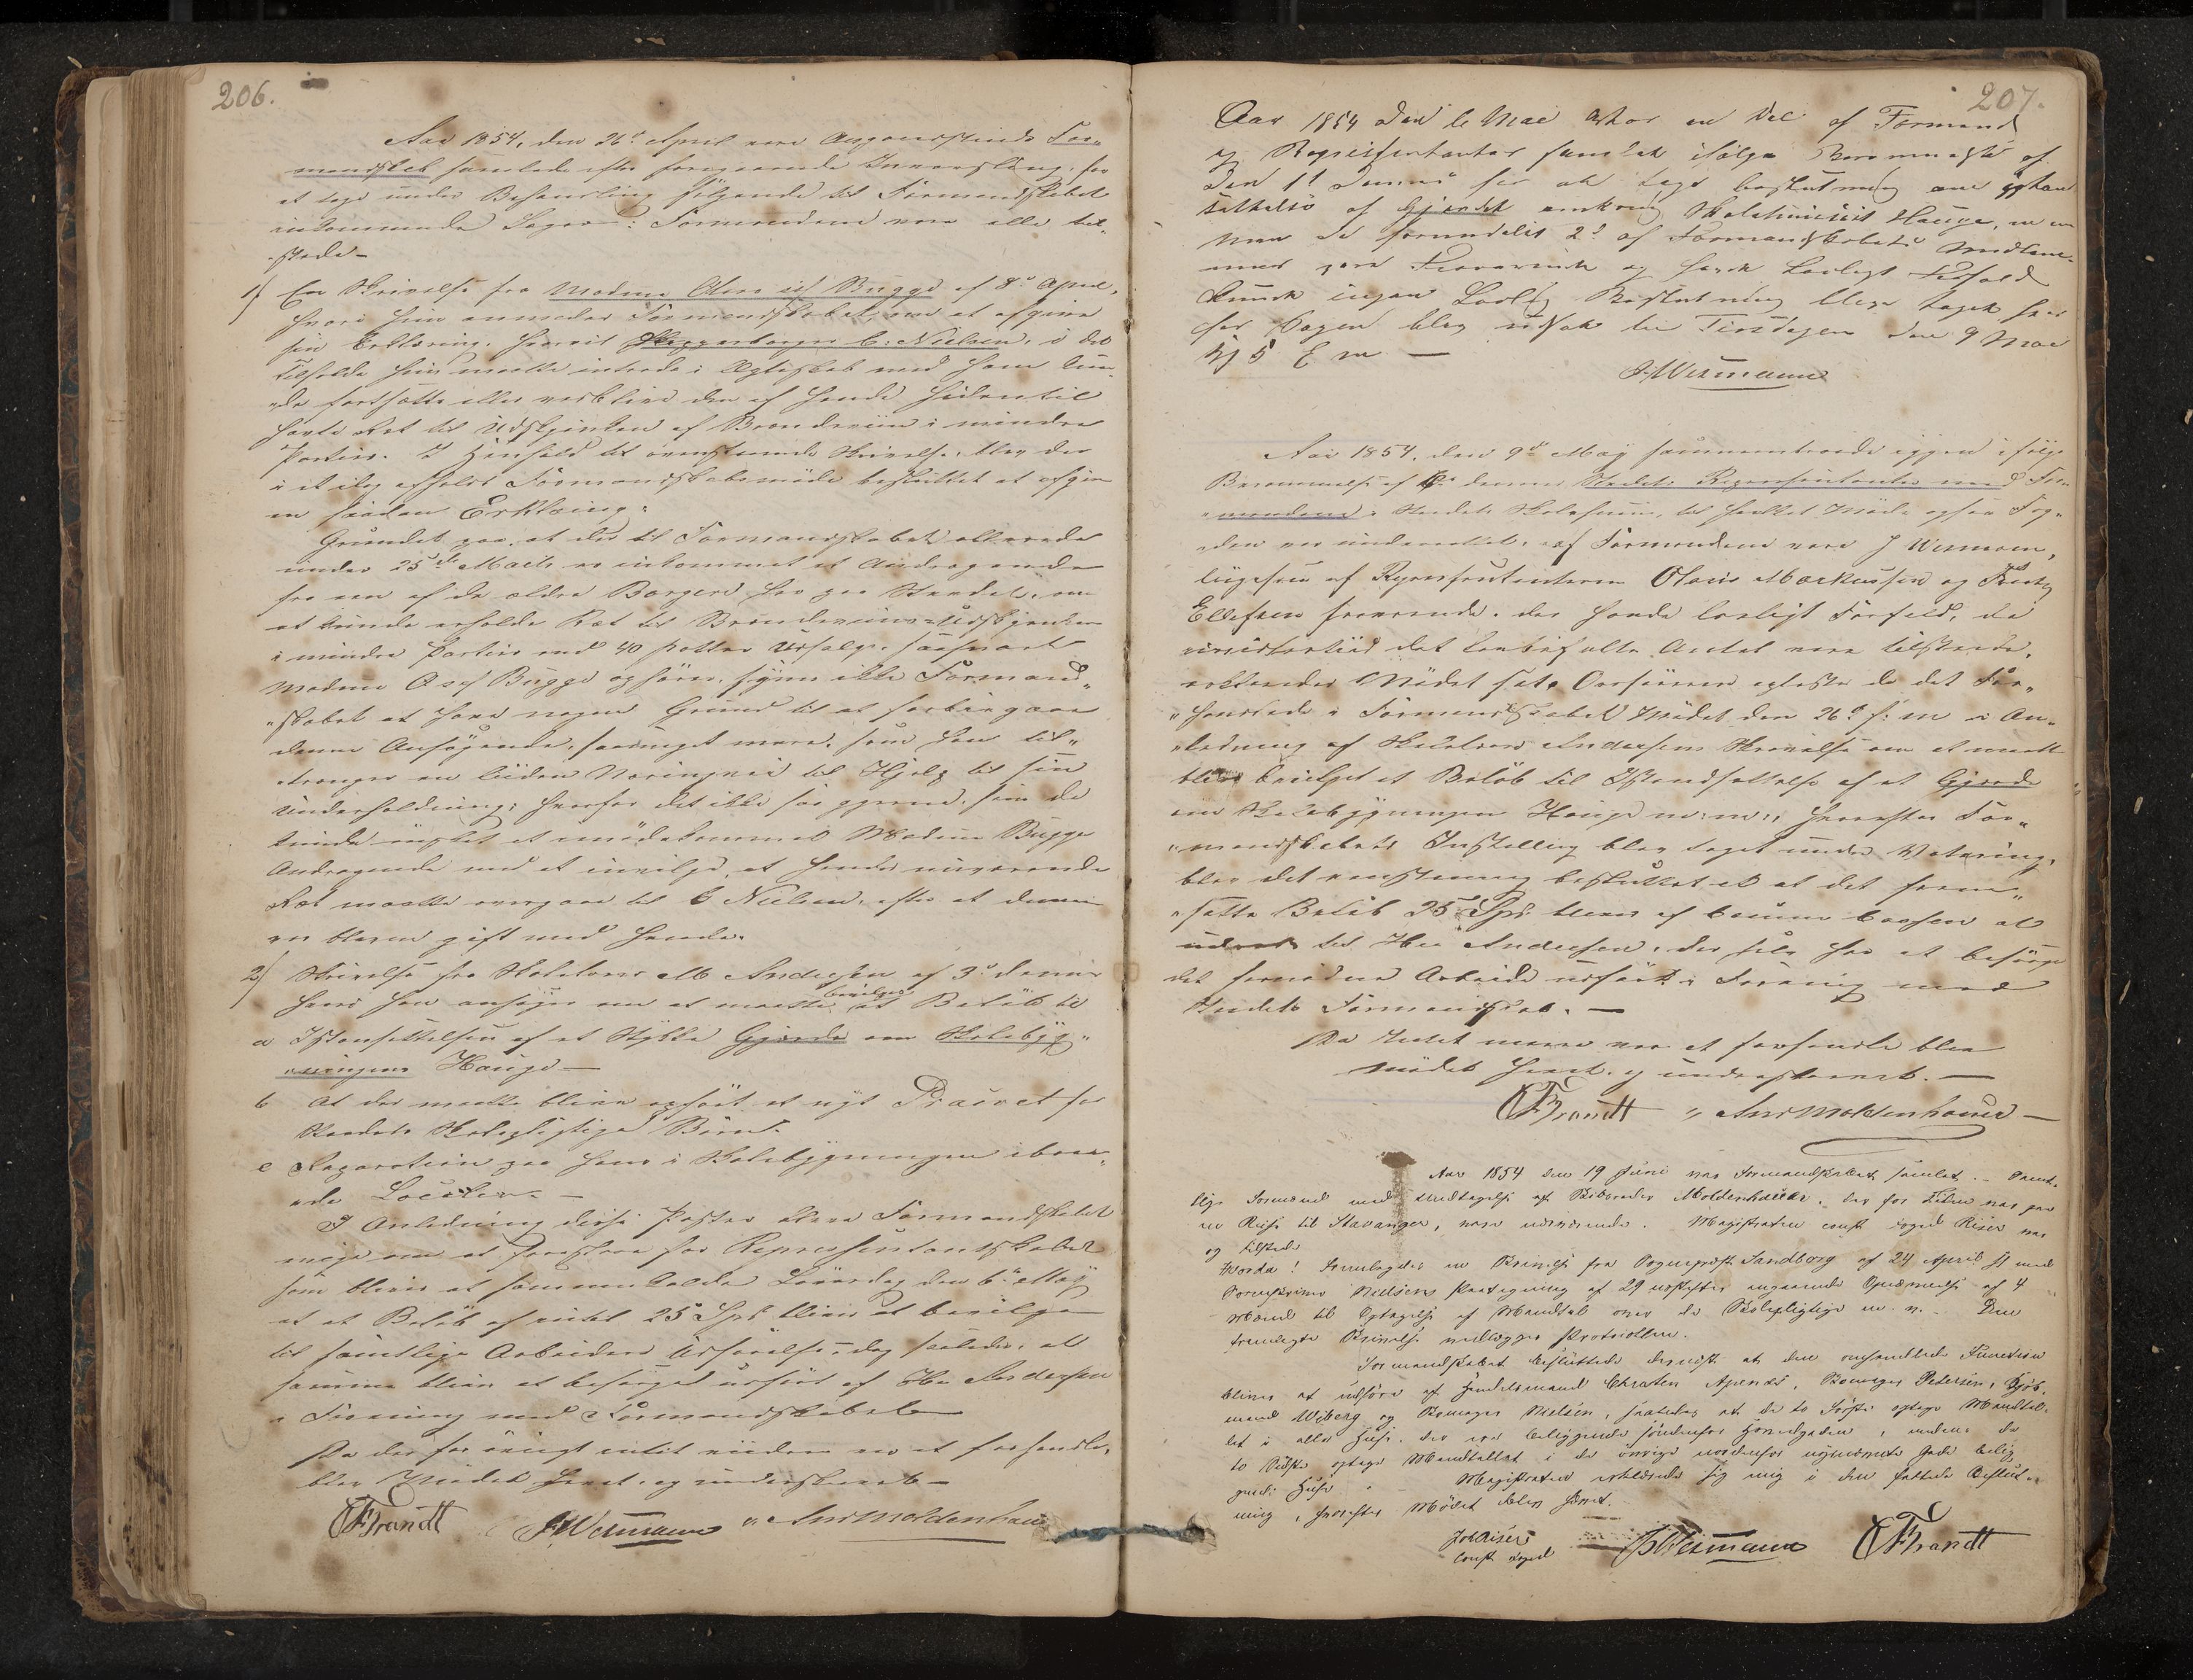 206.
Aar 1854, den 26d April var Augvaldsnæs For„
mandskab samlede efter foregaaende Indvarsling, for
at tage under Behandling følgende til Formandskabet
indkommende Sager: Formændene vare alle til„
stede –
1) En Skrivelse fra Madme Olava sal Bugge af 8de April,
hvori hun anmoder Formandskabet, om at afgive
sin Erklæring, hvorvidt Skipperborger C: Nielsen, i det
Tilfælde hun maatte indtræde i Ægteskab med ham kun„
de fortsætte eller vedblive den af hende hidentil
havte Ret til Udskjenken af Brændeviin i mindre
Partier. I Henhold til ovenstaaende Skrivelse, blev der
i et idag afholdt Formandskabsmøde besluttet at afgive
en saadan Erklæring:
Grundet paa, at der til Formandskabet allerede
under 25de Marts er indkommet et Andragende
fra een af de ældre Borgere her paa Stedet, om
at kunde erholde Ret til Brændeviins-Udskjenken
i mindre Partier end 40 Potter Udsalg, saasnart
Madme Bugge ophører, synes ikke Formand„
„skabet at have nogen Grund til at forbigaae
denne Ansøgende, saameget mere, som han til„
trænger en liden Næringsvei til Hjelp til sin
Underholdning; hvorfor det ikke saa gjerne, som de
kunde ønsket at imødekomme Madme Bugges
Andragende med at indvilge, at hendes nuværende
Ret maatte overgaae til C Nielsen, efter at denne
er bleven gift med hende.
2) Skrivelse fra Skolelærer Andersen af 3de dennes
hvori han ansøger om at maatte bevilges et Beløb til
a Istandsættelsen af et Stykke Gjærde om Skolebyg„
„ningens Hauge –
b At der maatte blive opført et nyt Privet for
Stedets Skolepligtige Børn.
c Reparation paa hans i Skolebygningen iboe„
„de Locale. –
I Anledning disse Poster blev Formandskabet
enige om at foreslaae for Repræsentantskabet
som bliver at sammenkalde Løverdag den 6te Maij
at et Beløb af indtil 25 Spd bliver at bevilge
til samtlige Arbeiders Udførelse, dog saaledes, at
samme bliver at besørget udført af Hr Andersen
i Forening med Formandskabet
Da der for øvrigt intet videre var at forhandle,
blev Mødet hævet, og underskrevet –
CFBrandt JWesmann Moldenhauer
207.
Aar 1854 den 6 Mai var en Del af Formænd
og Repræsentanter samlet ifølge Berammelse af
den 1ste dennes for at tage beslutning om Istand
sættelse af Gjærdet omkring Skolehusets Hauge, m m
Men da formodelig 2de af Formandskabets Medlem„
mer vare Fraværende og havde Lovligt Forfald
kunde ingen Lovlig Beslutning blive taget her
for Sagen blev udsat til Tirsdagen den 9 Mai
Kl 5 E m –
JWesmann
Aar 1854, den 9de Maij sammentraadte igjen i følge
Berammelse af 6te dennes Stedets Repræsentanter med For„
„mændene i Stedets Skolehuus, til hvilket Møde ogsaa Fog„
„den var underrettet. af Formændene vare J Wesmann,
ligesom af Repræsentanterne Olaus Markussen og
Ellefsen fraværende. der havde lovligt Forfald, da
imidlertid det lovbefalte Antal vare tilstede,
erklæredes Mødet sat. Ordføreren oplæste da det For„
„handlede i Formandskabet Mødet den 26d f: m i An„
„ledning af Skolelærer Andersens Skrivelse om at maatte
blive bevilget et Beløb til Istandsættelse af et Gjærde
om Skolebygningen Hauge m: m:, hvorefter For„
„mandskabets Indstilling blev taget under Votering,
blev det eenstemmig besluttet at det frem„
„satte Beløb 25 Spd bliver af Comune Cassen at
udrede til Hr Andersen, der selv har at besørge
det fornødne Arbeide udført i Forening med
Stedets Formandskab. –
Da Intet mere var at forhandle blev
Mødet hævet, og underskrevet. –
CFBrandt Moldenhauer –
Aar 1854 den 19 Juni var Formandskabet samlet. – Samt„
lige Formænd med Undtagelse af Moldenhauer, der for Tiden var paa
en Reise til Stavanger, vare nærværende. Magistraten const Foged Riser var
og tilstede
Hvorda! fremlagdes en Skrivelse fra Sogneprest Sandberg af 24 April d A med
Sorenskriver Nielsens Paategning af 29 næstefter angaaende Opnævnelse af 4
Mænd til Optagelse af Mandtal over de Skolepligtige m. v. – Den
fremlagte Skrivelse vedlægges Protocollen.
Formandskabet besluttede dernæst at den omhandlede Function
bliver at udføre af Handelsmand Christen Apenæs, Pedersen, Kjøb„
mand Wiberg og Nielsen, saaledes at de to Første optage Mandtal„
let i alle Huse, der ere beliggende søndenfor Hovedgaden, medens de
to Sidste optage Mandtallet i de øvrige nordenfor nysnævnte Gade belig„
gende Huse. – Magistraten erklærede sig enig i den fattede Beslut„
ning, hvorefter Mødet blev hævet.
Riser
const Foged
JWesmann CFBrandt